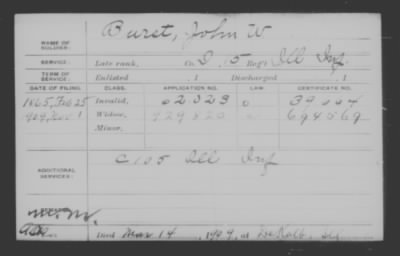 NAME OF SOLDIER: Burst, John W
SERVICE: Late rank, Co. D, 15 Reg't Ill Inf
TERM OF SERVICE: Enlisted , 1 Discharged , 1
DATE OF FILING. CLASS. APPLICATION NO. LAW. CERTIFICATE NO.
1865, Feb 25 Invalid, 62323 39004
1909, Nov 1 Widow, 929820 694569
Minor,
ADDITIONAL SERVICES: C 105 Ill Inf
Died Mar 14, 1909, at DeKalb, Ill